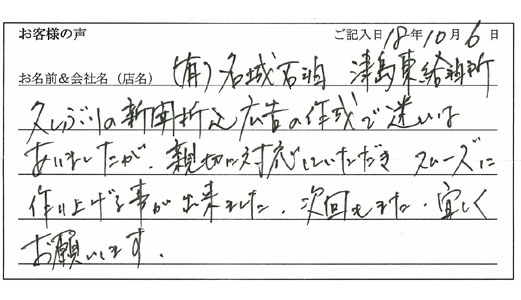 お客様の声 ご記入日 18年10月6日
お名前&会社名（店名） (有)名城石油 津島東給油所
久しぶりの新聞折込広告の作成で迷いは
ありましたが、親切に対応していただきスムーズに
作り上げる事が出来ました。次回もまた、宜しく
お願いします。